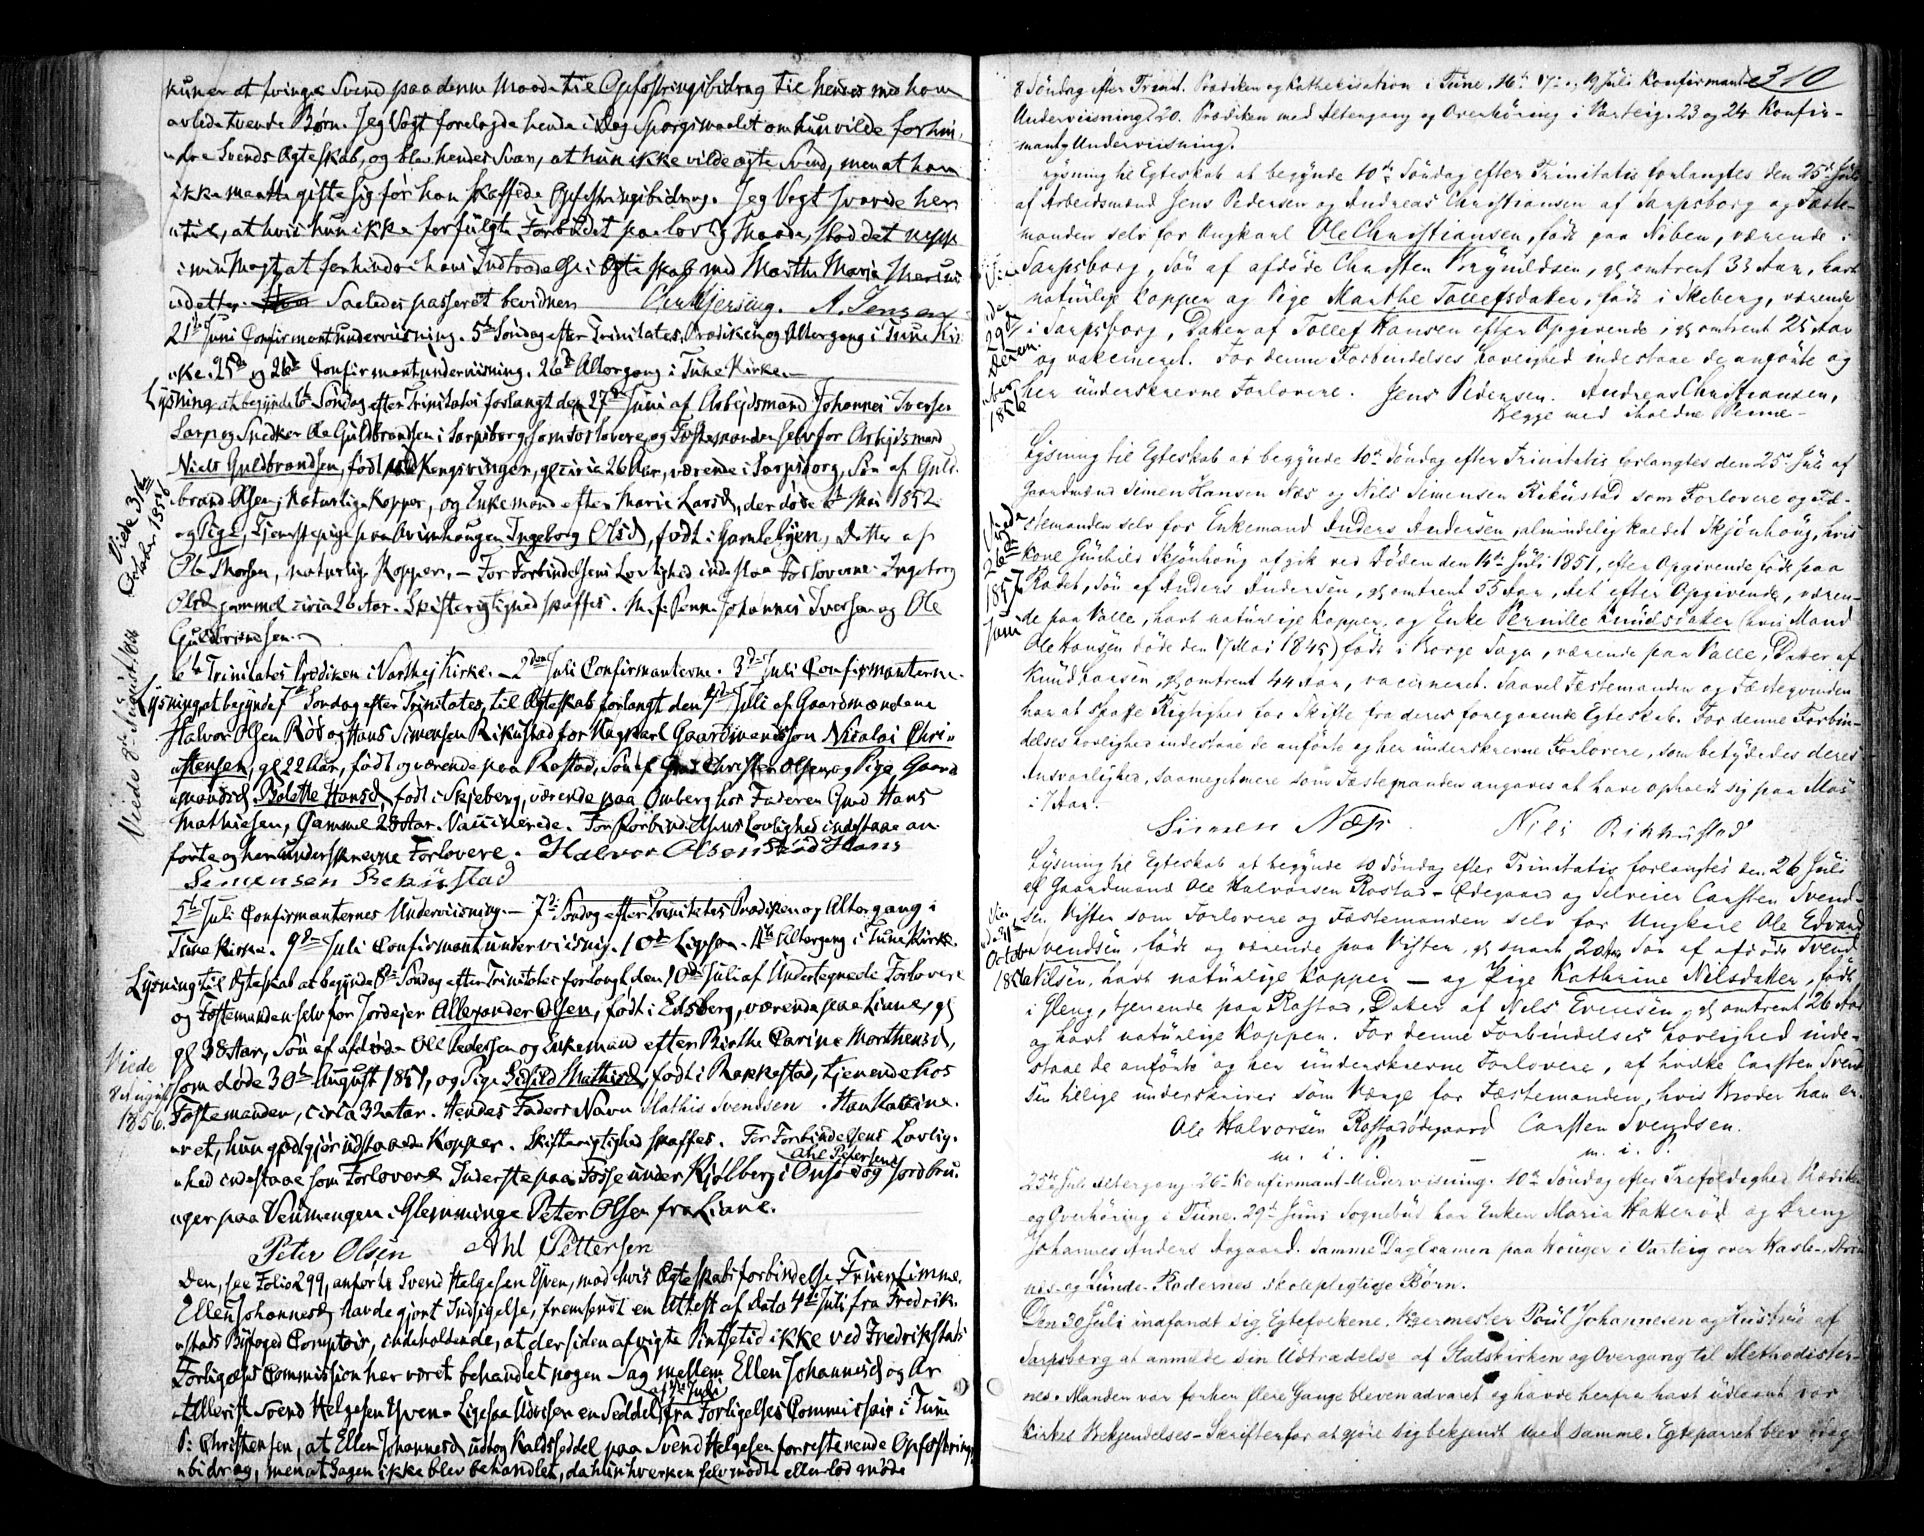 kun er at tvinge Svend paa denne Maade til Opfostringsbidrag til hendes med ham
avlede tvende Børn. Jeg Vogt forelagde hende i Dag Spørgsmaalet om hun vilde forhin-
dre Svends Ægteskab, og blev hendes Svar, at hun ikke vilde ægte Svend, men at han
ikke maatte gifte sig før han skaffede Opfostringsbidrag. Jeg Vogt svarede hen
til, at hvis hun ikke forfulgte Forbudet paa lovlig Maade, stod det neppe
i min Magt at forhindre hans Indtrædelse i Ægteskab med Marthe Maria
Saaledes passeret bevidnes A. Jensen
21de Juni Confirmantundervisning. 5te Søndag efter Trinitates, Prædiken og Altergang i Tune Kir-
ke. 25de og 26de Confirmantundervisning. 26de Altergang i Tune Kirke.
Lysning at begynde 6te Søndag efter Trinitatis forlangt den 27de Juni af Arbejdsmand Johannes Iversen
Sarp og Snedker Ole Guldbrandsen i Sarpsborg som Forlovere, og Fæstemanden selv for Arbejdsmand
Niels Guldbrandsen, født ved Kongsvinger, gl circa 26 Aar, værende i Sarpsborg, Søn af Guld-
brand Olsen, Naturlige Kopper, og Enkemand efter Marie Larsd, der døde 6te Mai 1852
og Pige, Tjenestepige paa Ingeborg Olsd, født i Gamlebyen, Datter af
Ole Thorsen, naturlige Kopper. – For Forbindelsens Lovlighed indestaa Forloverne. Ingeborg
Olsd gammel circa 26 Aar. Skifterigtighed skaffes. M. f. Penn. Johannes Iversen og Ole
Guldbrandsen.
Viede 31te October 1856
6te Trinitates Prædiken i Varteig Kirke. – 2den Juli Confirmanterne. 3de Juli Confirmanterne.
Lysning at begynde 7de Søndag efter Trinitates, til Ægteskab forlangt den 4de Juli af Gaardmændene
Halvor Olsen Rød og Hans Simensen Rikustad for Ungkarl Gaardmandssøn Nicolai Chri-
stensen, gl 22 Aar, født og værende paa Rostad, Søn af Christen Olsen, og Pige, Gaard-
mandsd. Bolette Hansd, født i Skjeberg, værende paa Omberg hos Faderen Gmd Hans
Mathiesen, Gammel 28 Aar. Vaccinerede. For Forbindelsens Lovlighed indestaae an-
førte og her underskrevne Forlovere. Halvor Olsen Rød Hans
Semensen Rekustad
Viede 8de August 1856
5te Juli Confirmanternes Underviisning. – 7de Søndag efter Trinitates Prædiken og Altergang i
Tune Kirke. 9de Juli Confirmantunderviisnig. 10de Ligesaa. 11te Altergang i Tune Kirke.
Lysning til Ægteskab at begynde 8de Søndag efter Trinitatis forlangt den 10de Juli af Undertegnede Forlovere
og Fæstemanden selv for Jordejer Allexander Olsen, født i Eidsberg, værende paa Liane, og
gl 38 Aar, Søn af afdøde Ole Pedersen og Enkemand efter Birthe Carine Morthensd,
som døde 30te August 1851, og Pige Sisild Mathisd, født i Rakkestad, tjenende hos
Fæstemanden, circa 32 Aar. Hendes Faders Navn Mathis Svendsen.
Viede 8 August 1856.
hun godtgjør udstaaede Kopper. Skifterigtighed skaffes. For Forbindelsens Lovlig-
hed indestaae som Forlovere Inderste paa Fosse under Kjølberg i Onsø Ahl Petersen og Jordbru-
ger paa Veumengen i Glemminge Peter Olsen fra Liane.
Peter Olsen Ahl Pettersen
Den, see Folio 299, anførte Svend Helgesen Yven, mod hvis Ægteskabsforbindelse Fruentimme
Ellen Johannesd, havde gjort Indsigelse, fremsendt en Attest af Dato 4de Juli fra Fredrik-
stads Byfoged Comptoir, indeholdende, at der siden afvigte Pintsetid ikke ved Fredrikstads
Forligelses Commission har været behandlet nogen Sag mellem Ellen Johannesd og
Svend Helgesen Yven. Ligesaa Udviser en Seddel af 7de Juli fra Forligelses Commissair i Tune
P. Christensen, at Ellen Johannesd udtog Kaldsseddel paa Svend Helgesen for restenende Opfostrings-
bidrag, men at Sagen ikke blev behandlet, da hun hverken selv mødte eller lod møde
310
8 Søndag efter Trinit. Prædiken og Kathekisation i Tune, 16de 17de og 19 Juli Konfirmand
Underviisning. 20. Prædiken med Altergang og Overhøring i Varteig. 23 og 24 Konfir-
mant Underviisning.
Lysning til Egteskab at begynde 10de Søndag efter Trinitatis forlangtes den 25de Juli
af Arbeidsmænd Jens Pedersen og Andreas Christiansen af Sarpsborg og Fæste-
manden selv for Ungkarl Ole Christiansen, født paa Noben, værende i
Sarpsborg, Søn af afdøde Christen Brynildsen, gl omtrent 33 Aar, havt
naturlige Kopper og Pige Marthe Tollefsdater, født i Skeberg, værende
i Sarpsborg, Dater af Tollef Hansen efter Opgivende, gl omtrent 25 Aar
og vakcineret. For denne Forbindelses Lovlighed indestaae de anførte og
her underskrevne Forlovere. Jens Pedersen. Andreas Christiansen,
Begge med iholdne Penne.
Lysning til Egteskab at begynde 10de Søndag efter Trinitatis forlangtes den 25de Juli af
Gaardmænd Simen Hansen Næs og Nils Simensen Rikustad som Forlovere og Fæ-
stemanden selv for Enkemand Anders Andersen, almindelig kaldet Skjønhoug, hvis
Kone Gunhild Skjønhoug afgik ved Døden den 14de Juli 1851, efter Opgivende født paa
Rødet, Søn af Anders Andersen, gl omtrent 55 Aar, det efter Opgivende, væren-
de paa Valle, havt naturlige Kopper, og Enke Pernille Knudsdater (hvis Mand
Ole Hansen døde den 17 Mai 1845) født i Borge Sogn, værende paa Valle, Dater af
Knud Hansen, gl omtrent 44 Aar, vaccineret. Saavel Fæstemanden og Fæstequinden
har at skaffe Rigtighed for Skifte fra deres foregaaende Egteskab. For denne Forbin-
delses Lovlighed indestaae de anførte og her underskrevne Forlovere, som betydedes deres
Ansvarlighed, saameget mere som Fæstemanden angaves at have opholdt sig paa Mos
i 7 Aar.
Simen Næss. Nils Rikkustad
Lysning til Egteskab at begynde 10 Søndag efter Trinitatis forlangtes den 26 Juli
af Gaardmænd Ole Halvorsen Rostad-Ødegaard og Selveier Carsten Svend-
sen Visten som Forlovere og Fæstemanden selv for Ungkarl Ole Edvard
Svendsen, født og værende paa Visten, gl snart 20 Aar, Søn af afdøde Svend
Nilsen, havt naturlige Kopper – og Pige Kathrine Nilsdater, født
i Gleng, tjenende paa Rostad, Dater af Nils Evensen, gl omtrent 26 Aar
og havt naturlige Kopper. For denne Forbindelses Lovlighed inde-
staae de anførte og her underskrevne Forlovere, af hvilke Carsten Svend-
sen tillige underskriver som Værge for Fæstemanden, hvis Broder han er.
Ole Halvorsen Rostadødegaard Carsten Svendsen.
m. i. P. – m. i. P.
October 1856
25de Juli Altergang. 26de Konfirmant-Undervisning. 10de Søndag efter Trefoldighed Prædiken
og Overhøring i Tune. 29de Juni Sognebud hos Enken Maria Hatterød og Dreng
Johannes Anders Aagaard. Samme Dag Examen paa Houger i Varteig over Hasle-
nes- og Lunde-Rodernes skolepligtige Børn.
Den 30 Juli indfandt sig Egtefolkene, Johannesen og Hustrue af
Sarpsborg at anmelde sin Udtrædelse af Statskirken og Overgang til Methodister-
nes. Manden var forhen flere Gange bleven advaret og havde herfra havt udlaant vor
Kirkes Bekjendelses-Skrifter for at gjøre sig bekjendt med samme. Egteparret blev idag